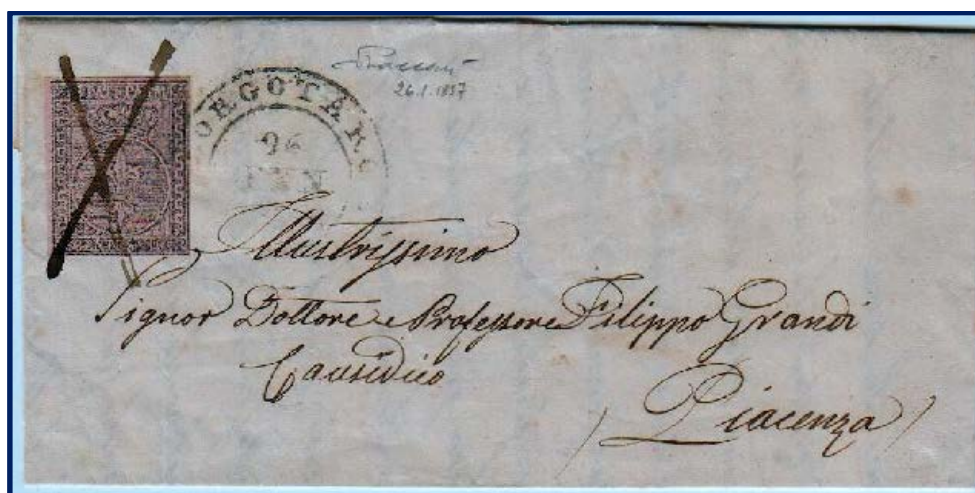 26.1.1857
ORGOTAR
26
Illustrissimo
Signor Dottore e Professore Filippo Grandi
Causidico
Piacenza